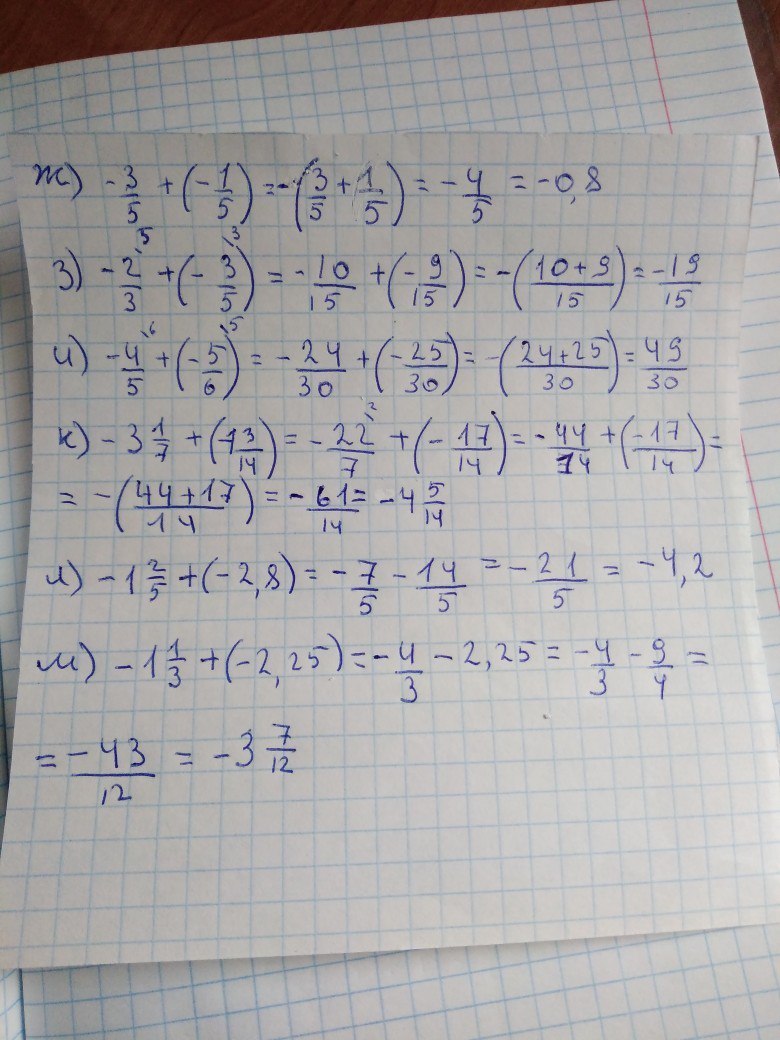 ж) -3/5 + (-1/5) = -(3/5 + 1/5) = -4/5 = -0,8
з) -2/3 \5 + (-3/5 \3) = -10/15 + (-9/15) = -(10+9/15) = -19/15
и) -4/5 \6 + (-5/6 \5) = -24/30 + (-25/30) = -(24+25/30) = 49/30
к) -3 1/7 + (-1 3/14) = -22/7 \2 + (-17/14) = -44/14 + (-17/14) =
= -(44+17/14) = -61/14 = -4 5/14
л) -1 2/5 + (-2,8) = -7/5 - 14/5 = -21/5 = -4,2
м) -1 1/3 + (-2,25) = -4/3 - 2,25 = -4/3 - 9/4 =
= -43/12 = -3 7/12